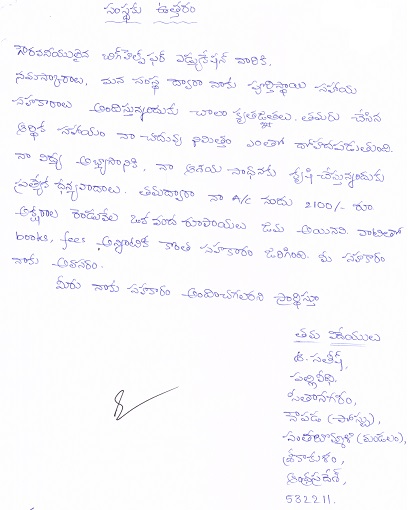 సంస్థకు ఉత్తరం
గౌరవనీయులైన బిగ్‌హెల్ప్ ఫర్ ఎడ్యుకేషన్ వారికి,
నమస్కారాలు. మన సంస్థ ద్వారా నాకు పూర్తిస్థాయి సహాయ
సహకారాలు అందిస్తున్నందుకు చాలా కృతజ్ఞతలు. తమరు చేసిన
ఆర్థిక సహాయం నా చదువు నిమిత్తం ఎంతో దోహదపడుతుంది.
నా విద్య అభ్యాసానికి, నా ఆశయ సాధనకు కృషి చేస్తున్నందుకు
ప్రత్యేక ధన్యవాదాలు. తమద్వారా నా A/C నందు 2100/- రూ.
అక్షరాల రెండువేల ఒక వంద రూపాయలు జమ అయినవి. వాటితో
books, fees అన్నింటికి కొంత సహకారం జరిగింది. మీ సహకారం
నాకు అవసరం.
మీరు నాకు సహకారం అందించగలరని ప్రార్థిస్తూ
తమ విధేయులు
సతీష్,
పల్లివీధి,
సీతానగరం,
నౌపడ (పోస్టు),
సంతబొమ్మాళి (మండలం),
శ్రీకాకుళం,
ఆంధ్రప్రదేశ్,
532211.